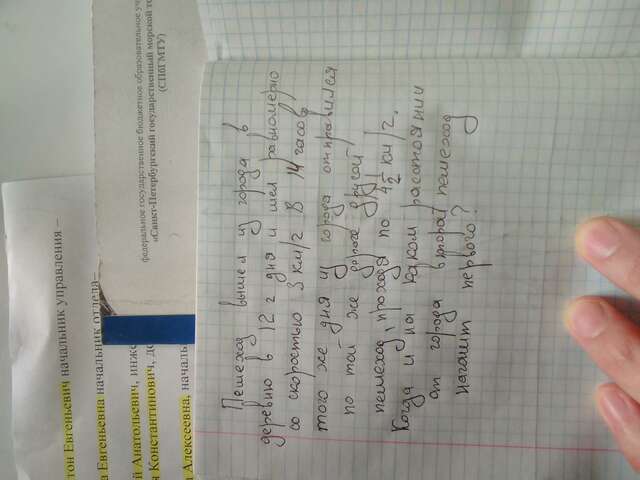 федеральное государственное бюджетное образовательное уч
«Санкт-Петербургский государственный морской т
(СПбГМТУ)
тон Евгеньевич начальник управления –
а Евгеньевна начальник отдела–
й Анатольевич, инже
Константинович, д
Алексеевна, началь
Пешеход вышел из города в
деревню в 12 г дня и шел равномерно
со скоростью 3 км/г В 14 часов
того же дня из города отправился
по той же дороге другой
пешеход, проходя по 4 1/2 км/г.
Когда и на каком расстоянии
от города второй пешеход
нагонит первого?